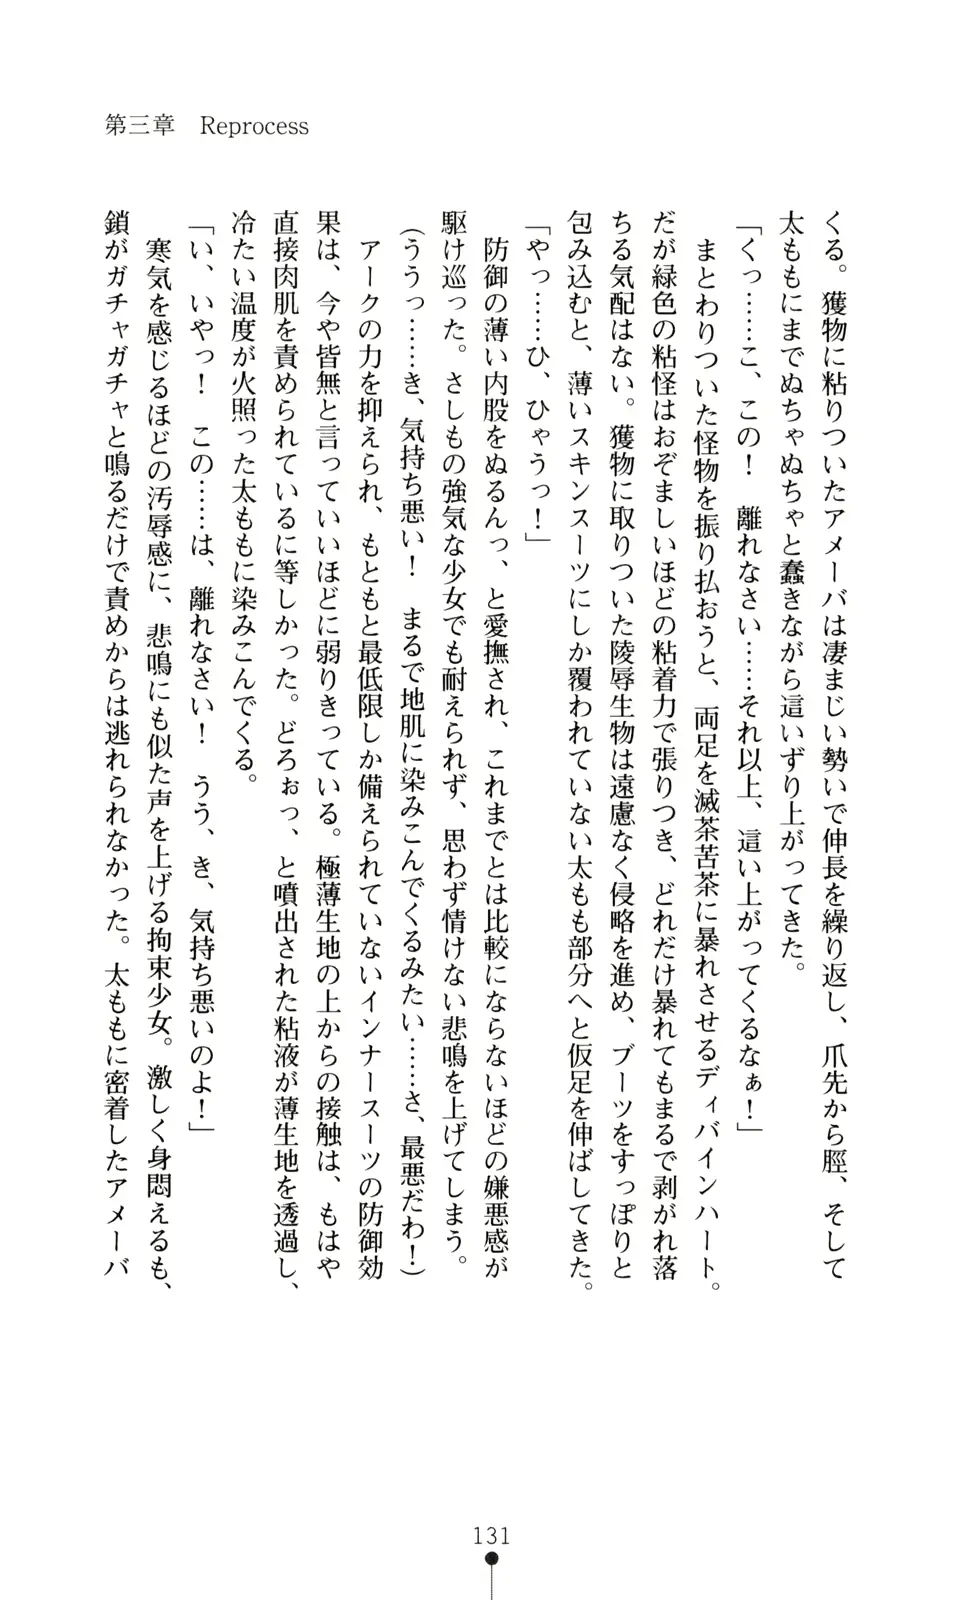 第三章　Reprocess
くる。獲物に粘りついたアメーバは凄まじい勢いで伸長を繰り返し、爪先から脛、そして
太ももにまでぬちゃぬちゃと蠢きながら這いずり上がってきた。
「くっ……こ、この！　離れなさい……それ以上、這い上がってくるなぁ！」
　まとわりついた怪物を振り払おうと、両足を滅茶苦茶に暴れさせるディバインハート。
だが緑色の粘怪はおぞましいほどの粘着力で張りつき、どれだけ暴れてもまるで剥がれ落
ちる気配はない。獲物に取りついた陵辱生物は遠慮なく侵略を進め、ブーツをすっぽりと
包み込むと、薄いスキンスーツにしか覆われていない太もも部分へと仮足を伸ばしてきた。
「やっ……ひ、ひゃうっ！」
　防御の薄い内股をぬるんっ、と愛撫され、これまでとは比較にならないほどの嫌悪感が
駆け巡った。さしもの強気な少女でも耐えられず、思わず情けない悲鳴を上げてしまう。
（ううっ……き、気持ち悪い！　まるで地肌に染みこんでくるみたい……さ、最悪だわ！）
　アークの力を抑えられ、もともと最低限しか備えられていないインナースーツの防御効
果は、今や皆無と言っていいほどに弱りきっている。極薄生地の上からの接触は、もはや
直接肉肌を責められているに等しかった。どろぉっ、と噴出された粘液が薄生地を透過し、
冷たい温度が火照った太ももに染みこんでくる。
「い、いやっ！　この……は、離れなさい！　うう、き、気持ち悪いのよ！」
　寒気を感じるほどの汚辱感に、悲鳴にも似た声を上げる拘束少女。激しく身悶えるも、
鎖がガチャガチャと鳴るだけで責めからは逃れられなかった。太ももに密着したアメーバ
131